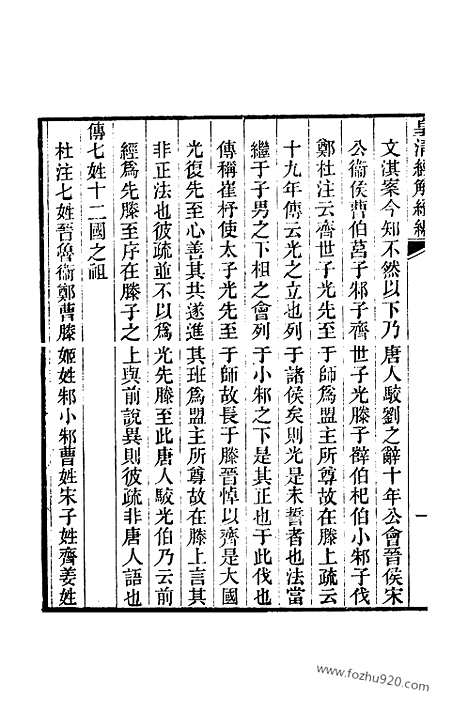 皇清經解續編
文淇案今知不然以下乃唐人駮劉之辭十年公會晉侯宋
公衞侯曹伯莒子邾子齊世子光滕子薛伯杞伯小邾子伐
鄭杜注云齊世子光先至于師爲盟主所尊故在滕上疏云
十九年傳云光之立也列于諸侯矣則光是未誓者也法當
繼于子男之下相之會列于小邾之下是其正也于此伐也
傳稱崔杼使太子光先至于師故長于滕晉悼以齊是大國
光復先至心善其共遂進其班爲盟主所尊故在滕上言其
非正法也彼疏並不以爲光先滕至此唐人駮光伯乃云前
經爲先滕至序在滕子之上與前說異則彼疏非唐人語也
傳七姓十二國之祖
杜注七姓晉魯衞鄭曹滕姬姓邾小邾曹姓宋子姓齊姜姓
一
www.fozhu920.com